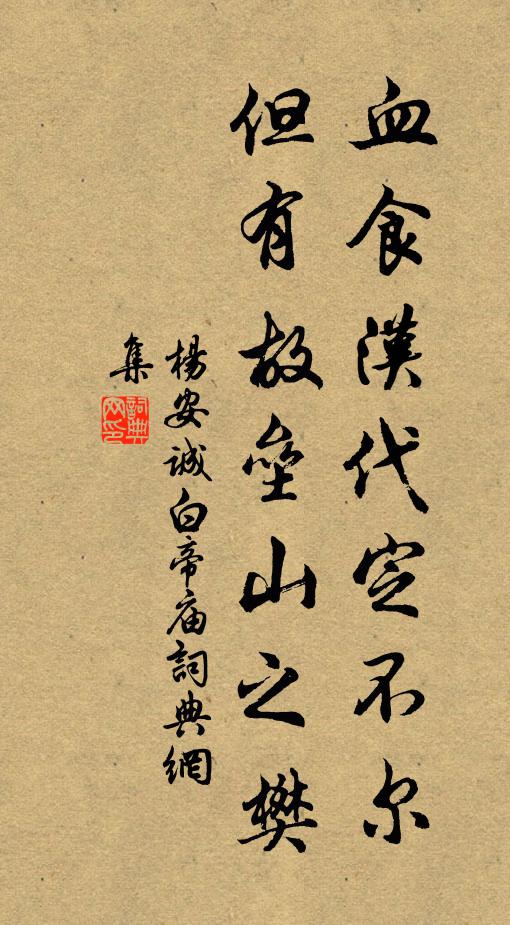 血食漢代定不尔
但有故壘山之樊
楊安诚白帝庙詞典網
集
詞典网印